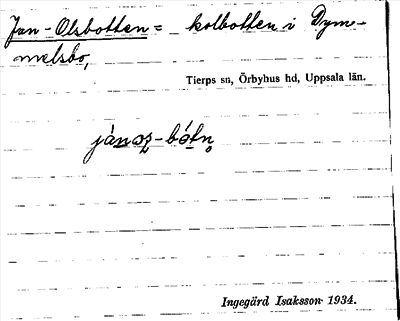 Jan-Olsbotten = kolbotten i Dym-
melsbo,
Tierps sn, Örbyhus hd, Uppsala län.
Ingegärd Isaksson 1934.